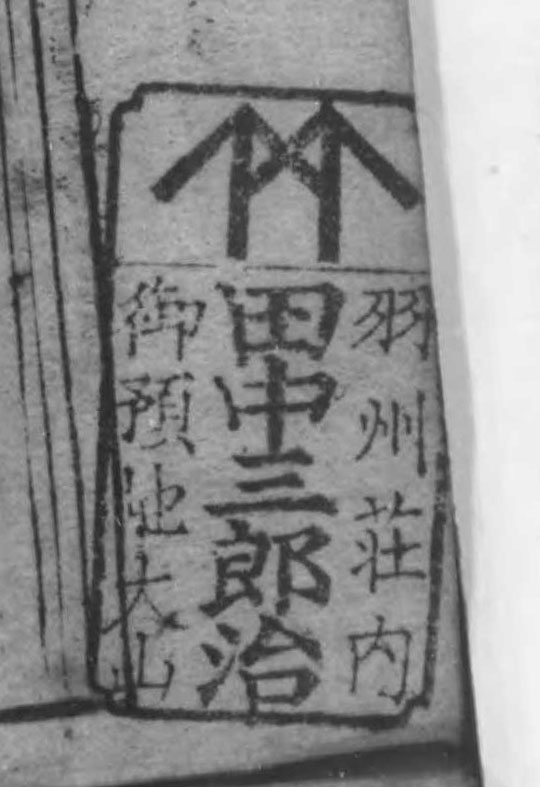 羽州荘内
田中三郎治
御預地大山